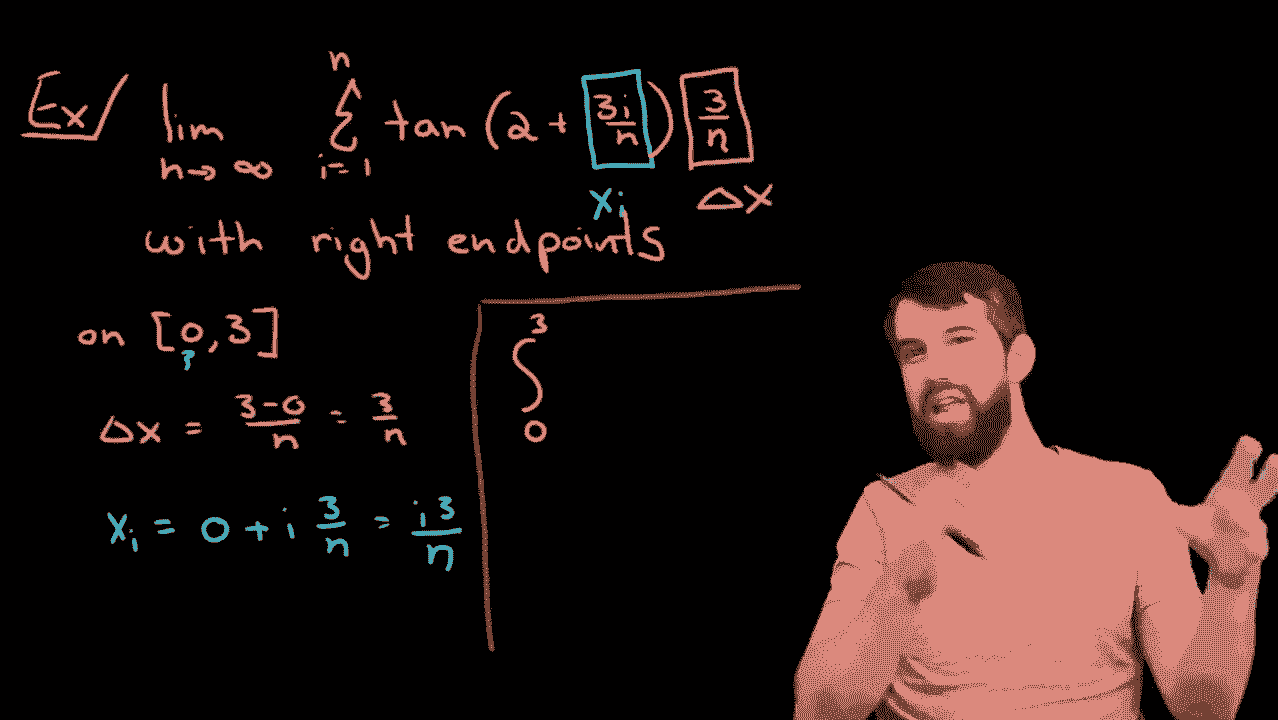 Ex/ lim n→∞ n Σ i=1 tan (2 + 3i/n) 3/n
xi Δx
with right endpoints
on [0,3]
?
Δx = 3-0/n = 3/n
xi = 0 + i 3/n = i3/n
∫ 3 0